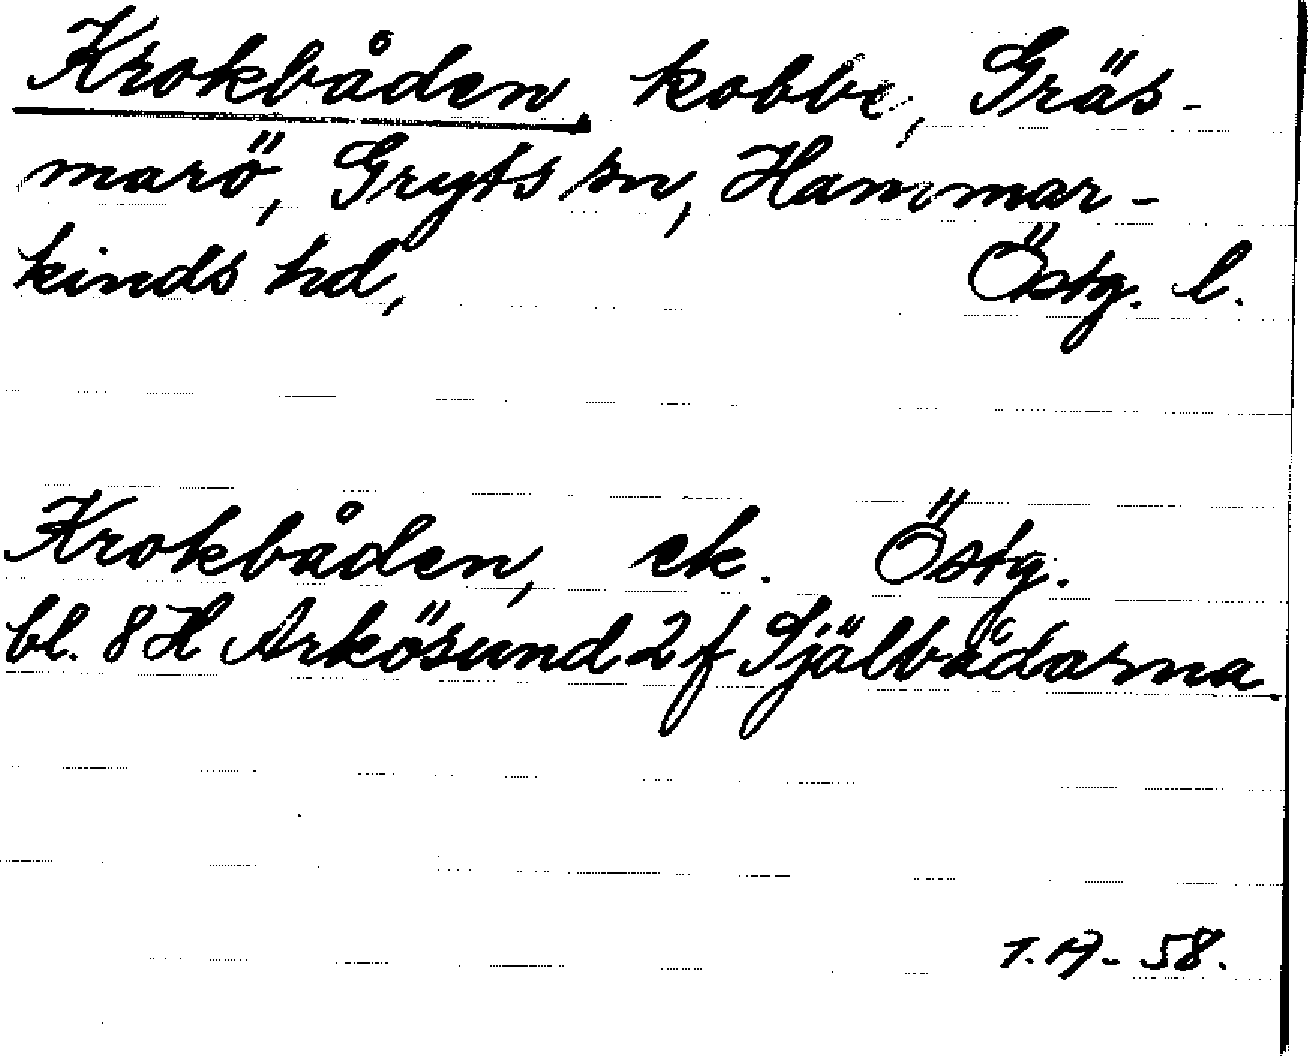 Krokbåden, kobbe, Gräs-
marö, Gryts sn, Hammar-
kinds hd, Östg. l.
Krokbåden, ek. Östg.
bl. 8 H Arkösund 2 f Själbådarna.
58.